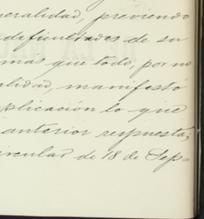 neralidad, previendo
defiunciones de su
mas que todo, por no
alidad, manifestó
plicación lo que
anterior respuesta,
ircular de 18 de Sep-